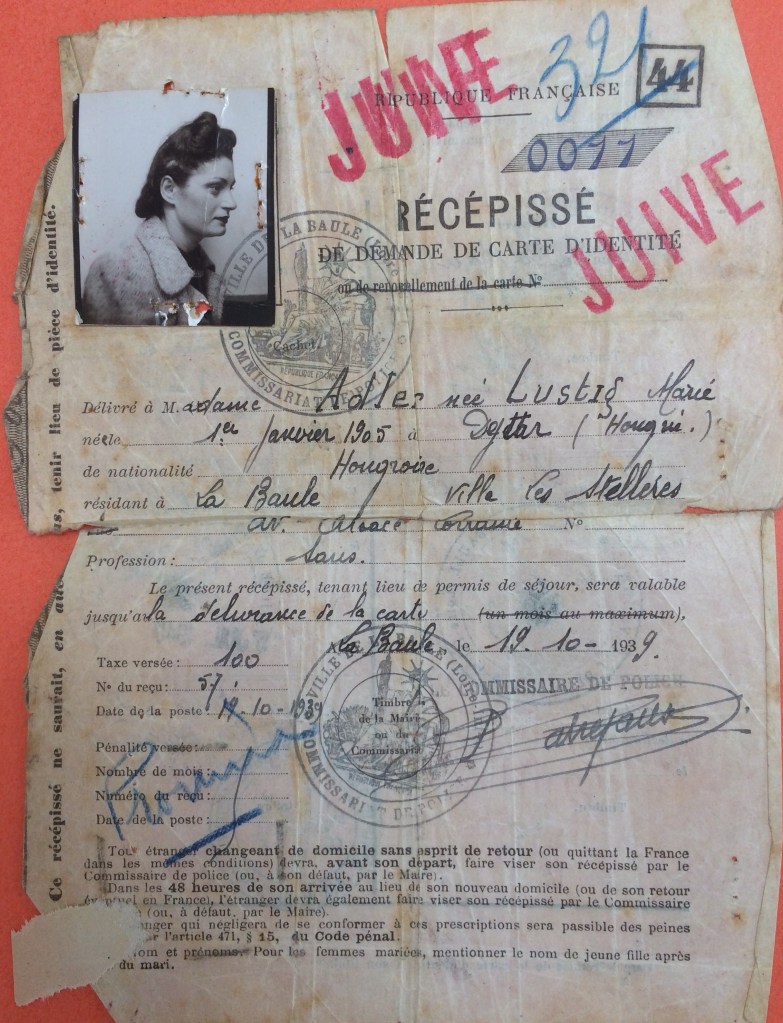 JUIVE
321
44
RÉPUBLIQUE FRANÇAISE
0011
RÉCÉPISSÉ
JUIVE
DE DEMANDE DE CARTE D'IDENTITÉ
ou de renouvellement de la carte N°
VILLE DE LA BAULE (Loire
COMMISSARIAT DE POLICE
Cachet.
RÉPUBLIQUE FRANÇAISE
Délivré à M. adame Adler née Lustig Marie
née le 1er janvier 1905 à (Hongrie.)
de nationalité Hongroise
résidant à La Baule villa les
av. Alsace Lorraine N°
Profession: Sans.
Le présent récépissé, tenant lieu de permis de séjour, sera valable
jusqu'à la délivrance de la carte (un mois au maximum),
A La Baule le 19. 10 - 1939.
Taxe versée: 100
N° du reçu: 57
Date de la poste: -10-1939
COMMISSAIRE DE POLICE
VILLE DE LA BAULE (Loire
COMMISSARIAT DE POLICE
Timbre
de la Mairie
ou du
Commissariat
Pénalité versée:
Nombre de mois:
Numéro du reçu:
Date de la poste:
Tout étranger changeant de domicile sans esprit de retour (ou quittant la France
dans les mêmes conditions) devra, avant son départ, faire viser son récépissé par le
Commissaire de police (ou, à son défaut, par le Maire).
Dans les 48 heures de son arrivée au lieu de son nouveau domicile (ou de son retour
en France), l'étranger devra également faire viser son récépissé par le Commissaire
(ou, à défaut, par le Maire).
qui négligera de se conformer à ces prescriptions sera passible des peines
l'article 471, § 15, du Code pénal.
et prénoms. Pour les femmes mariées, mentionner le nom de jeune fille après
du mari.
Ce récépissé ne saurait, en tenir lieu de pièce d'identité.